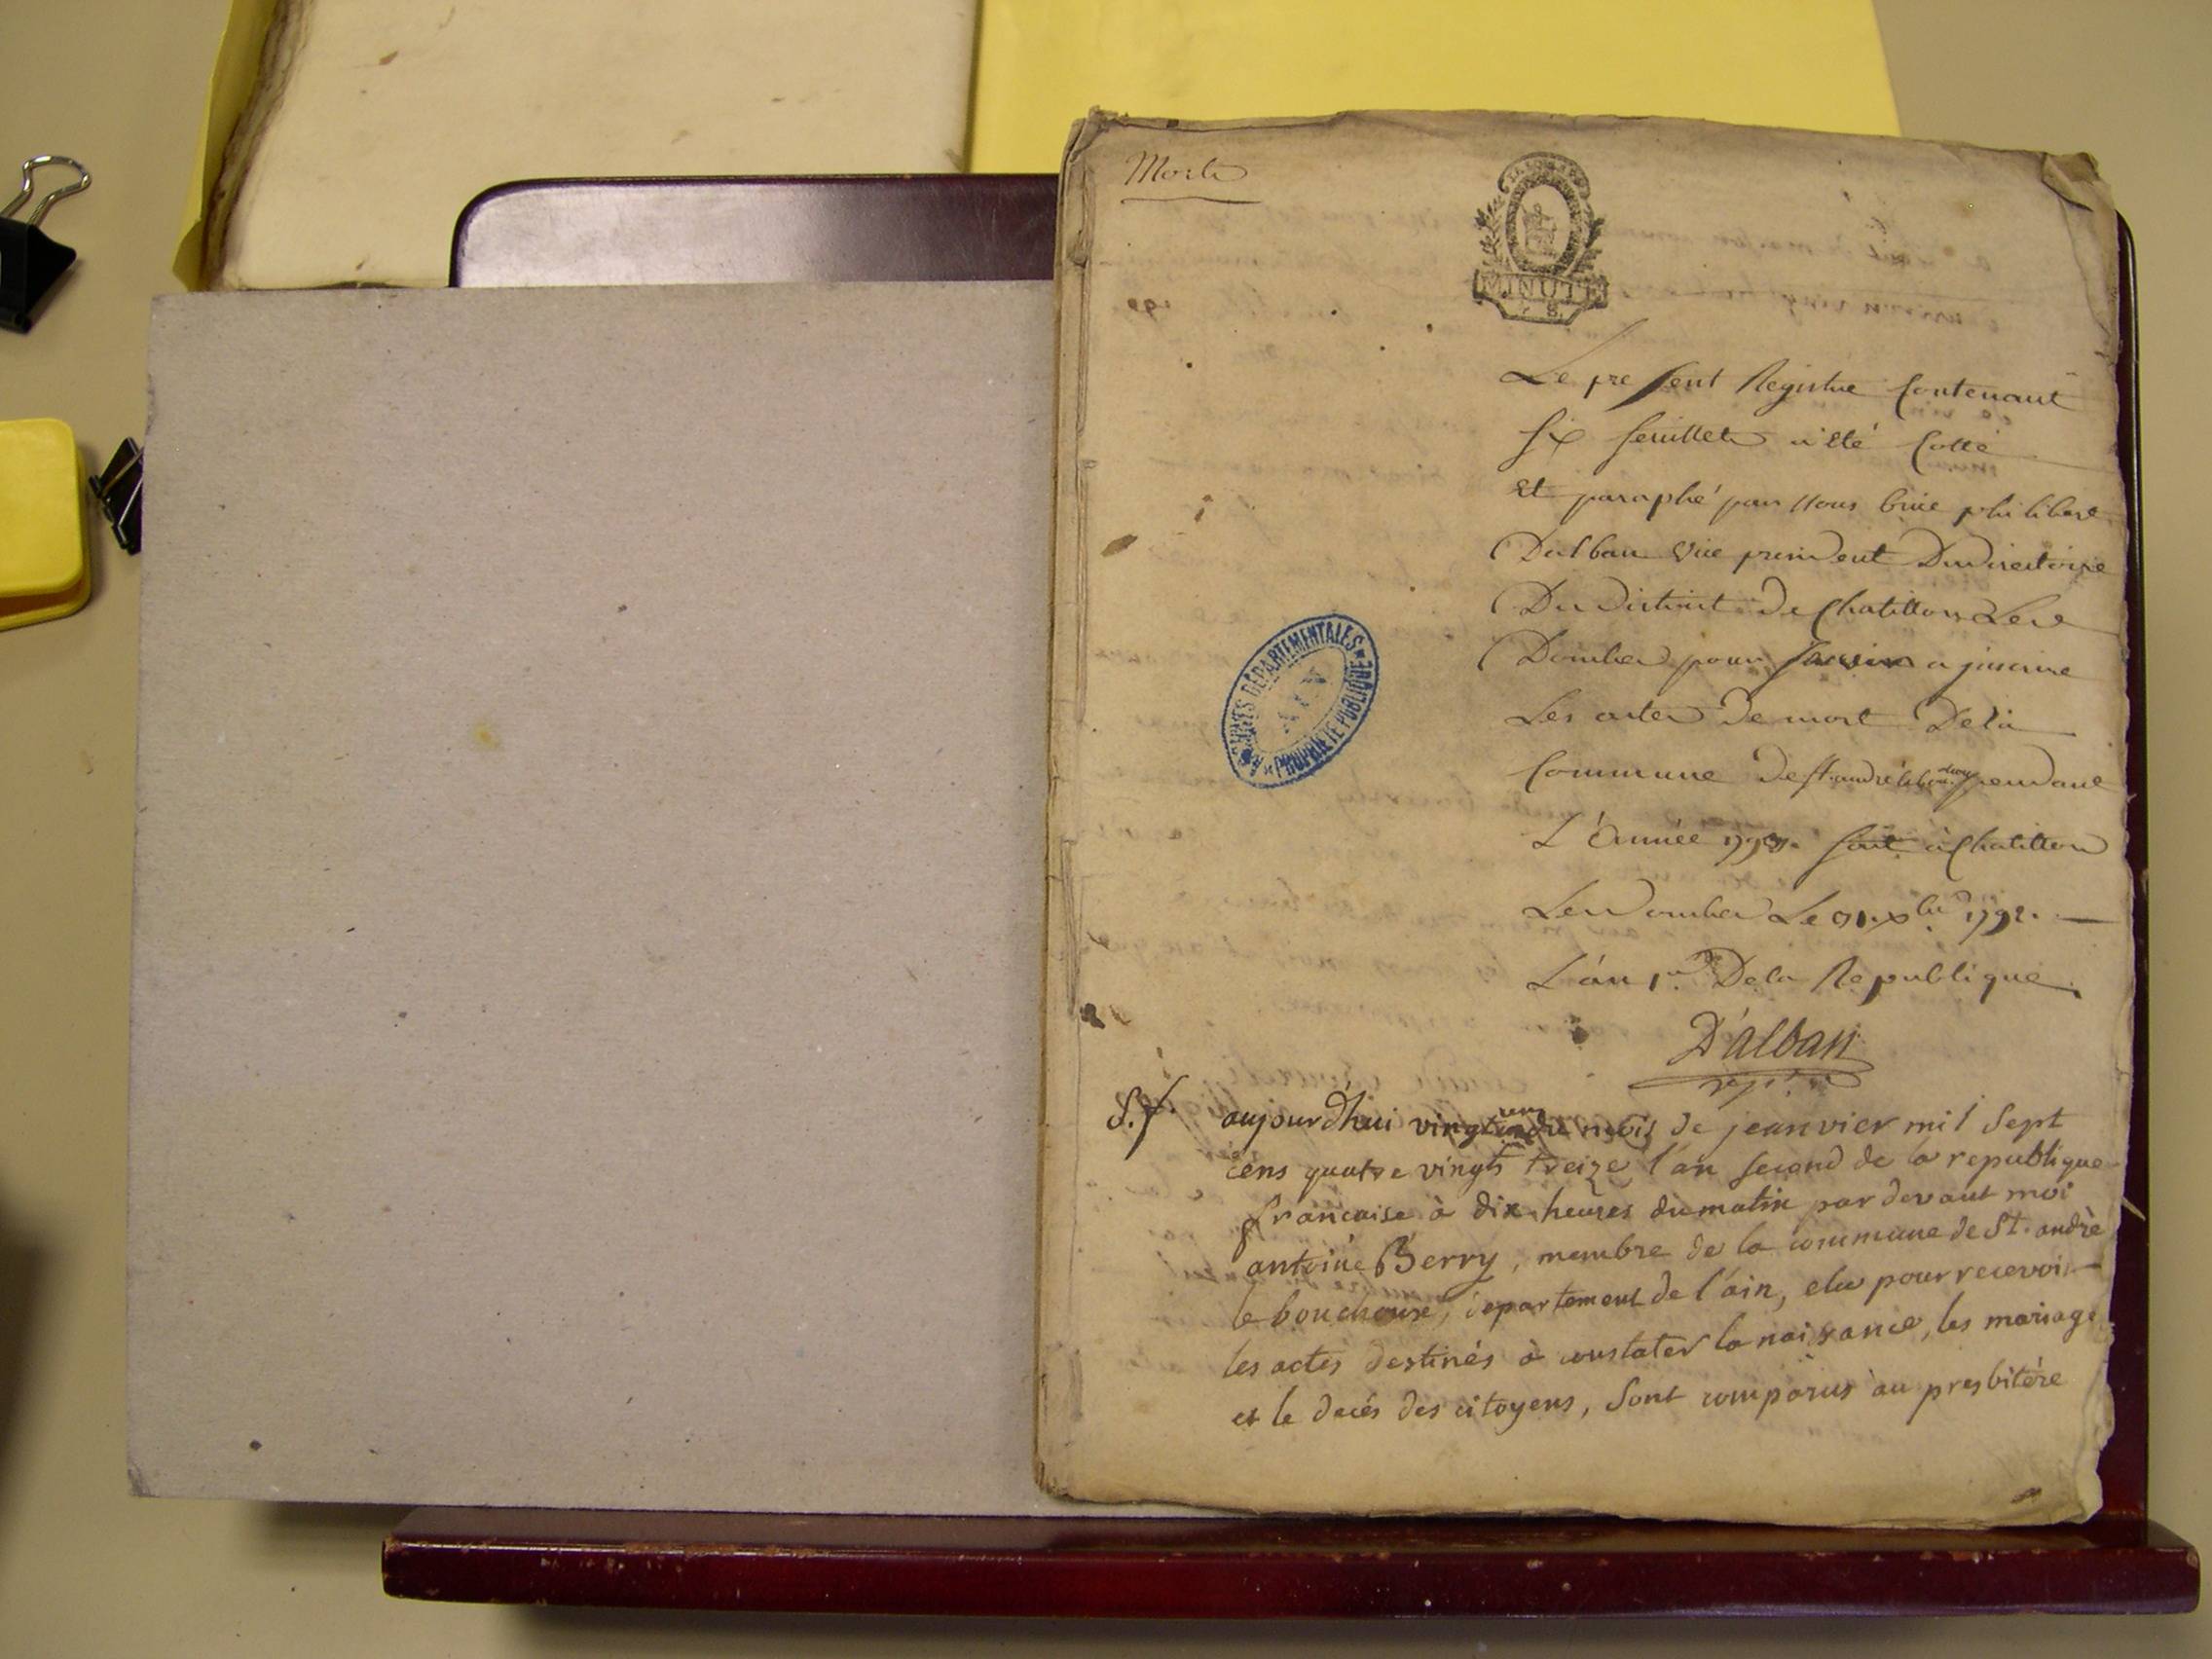 Morts
MINUTE
Le present Registre Contenant
Six feuillets a Eté Cotté
Et paraphé par Nous philibert
Dalban Vice president Du directoire
Du District de Chatillon Les
Dombes pour Servir a inscrire
Les actes De mort De la
Commune de st. andré le bouchoux pendant
L'Année 1793. fait à Chatillon
Les Dombes Le 1792.
L'an 1er De la Republique.
D'alban
S.f aujourd'hui vingt un du mois de jeanvier mil sept
cens quatre vingts treize l'an second de la republique
francaise à dix heures du matin par devant moi
antoine Berry, membre de la commune de St. andrè
le bouchoux, departement de l'ain, elu pour recevoir
les actes destinés à constater la naissance, les mariage
et le decés des citoyens, sont comparus au presbitére
ARCHIVES DEPARTEMENTALES
AIN
PROPRIETE PUBLIQUE